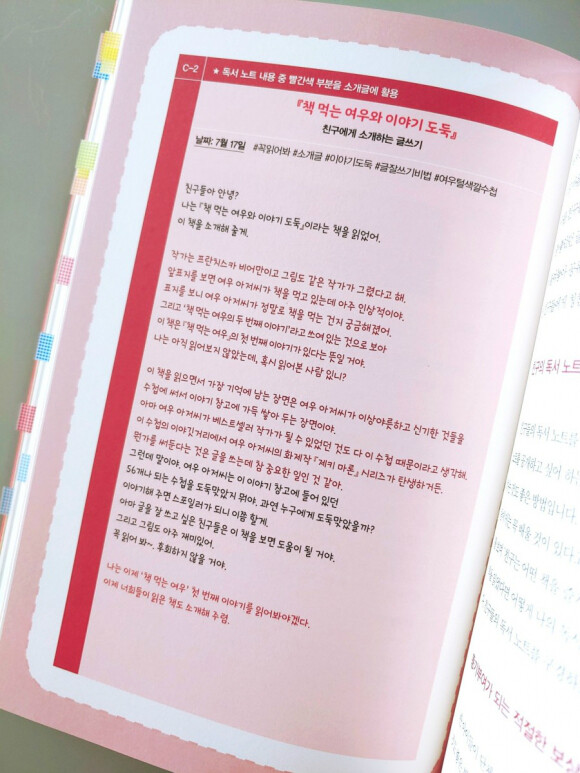 C-2 ★ 독서 노트 내용 중 빨간색 부분을 소개글에 활용
『책 먹는 여우와 이야기 도둑』
친구에게 소개하는 글쓰기
날짜: 7월 17일 #꼭읽어봐 #소개글 #이야기도둑 #글잘쓰기비법 #여우털색깔수첩
친구들아 안녕?
나는 『책 먹는 여우와 이야기 도둑』이라는 책을 읽었어.
이 책을 소개해 줄게.
작가는 프란치스카 비어만이고 그림도 같은 작가가 그렸다고 해.
앞표지를 보면 여우 아저씨가 책을 먹고 있는데 아주 인상적이야.
표지를 보니 여우 아저씨가 정말로 책을 먹는 건지 궁금해졌어.
그리고 '책 먹는 여우의 두 번째 이야기'라고 쓰여 있는 것으로 보아
이 책은 『책 먹는 여우』의 첫 번째 이야기가 있다는 뜻일 거야.
나는 아직 읽어보지 않았는데, 혹시 읽어본 사람 있니?
이 책을 읽으면서 가장 기억에 남는 장면은 여우 아저씨가 이상야릇하고 신기한 것들을
수첩에 써서 이야기 창고에 가득 쌓아 두는 장면이야.
아마 여우 아저씨가 베스트셀러 작가가 될 수 있었던 것도 다 이 수첩 때문이라고 생각해.
이 수첩의 이야깃거리에서 여우 아저씨의 화제작 『재키 마론』 시리즈가 탄생하거든.
뭔가를 써둔다는 것은 글을 쓰는데 참 중요한 일인 것 같아.
그런데 말이야. 여우 아저씨는 이 이야기 창고에 들어 있던
56개나 되는 수첩을 도둑맞았지 뭐야. 과연 누구에게 도둑맞았을까?
이야기해 주면 스포일러가 되니 이쯤 할게.
아마 글을 잘 쓰고 싶은 친구들은 이 책을 보면 도움이 될 거야.
그리고 그림도 아주 재미있어.
꼭 읽어 봐~. 후회하지 않을 거야.
나는 이제 '책 먹는 여우' 첫 번째 이야기를 읽어봐야겠다.
이제 너희들이 읽은 책도 소개해 주렴.
독서 노트
되는 적절한 보상